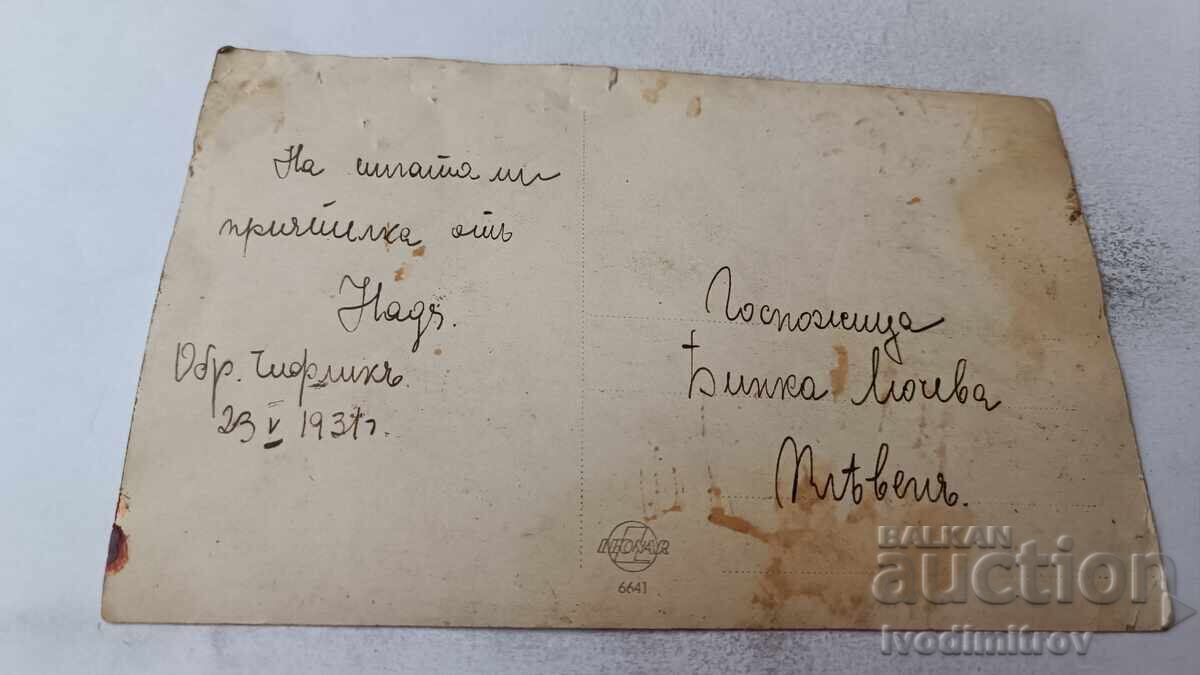 На милата ми
приятелка отъ
Надя.
Обр. Чифликъ.
23 V 1931 г.
Госпожица
Бинка Мочева
Плѣвенъ.
LEONAR
6641
BALKAN
auction
Ivodimitrov